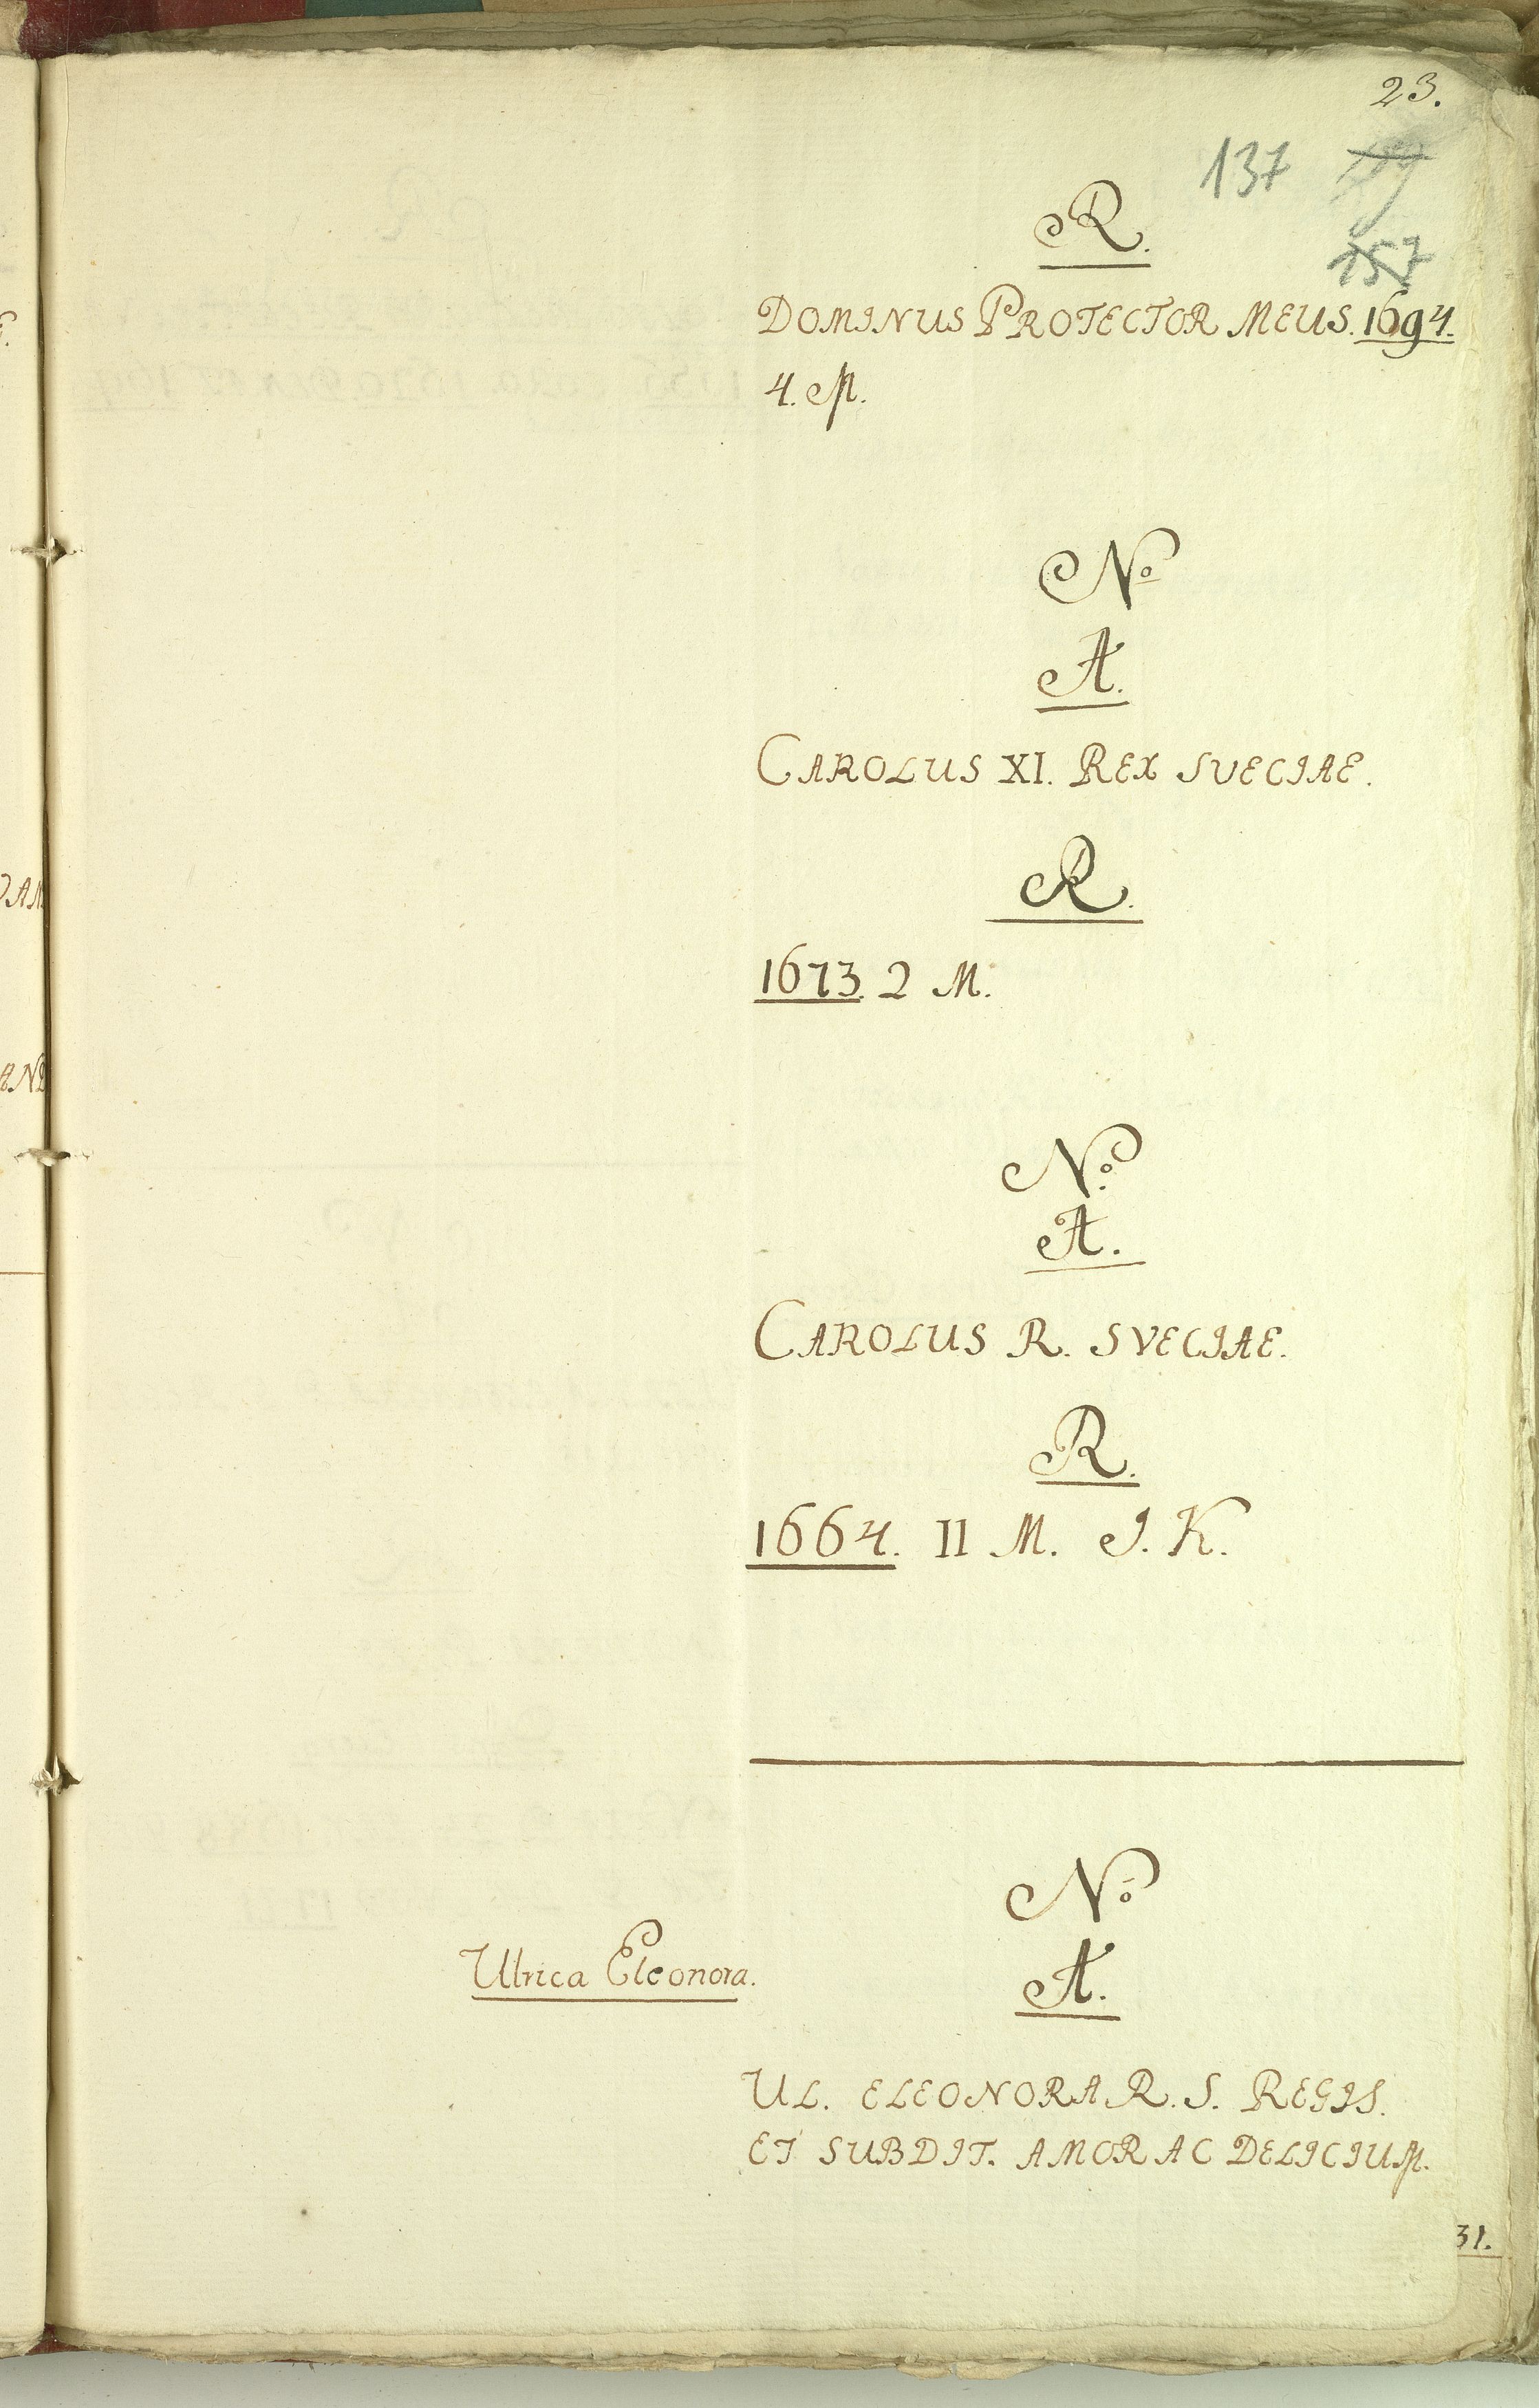 23.
137
157
R.
DOMINUS PROTECTOR MEUS. 1694.
4. M.
No
A.
CAROLUS XI. REX SVECIAE.
R.
1673. 2 M.
No
A.
CAROLUS R. SVECIAE.
R.
1664. II M. I. K.
No
Ulrica Eleonora.
A.
UL. ELEONORA R. S. REGIS.
ET SUBDIT. AMOR AC DELICIUM.
31.